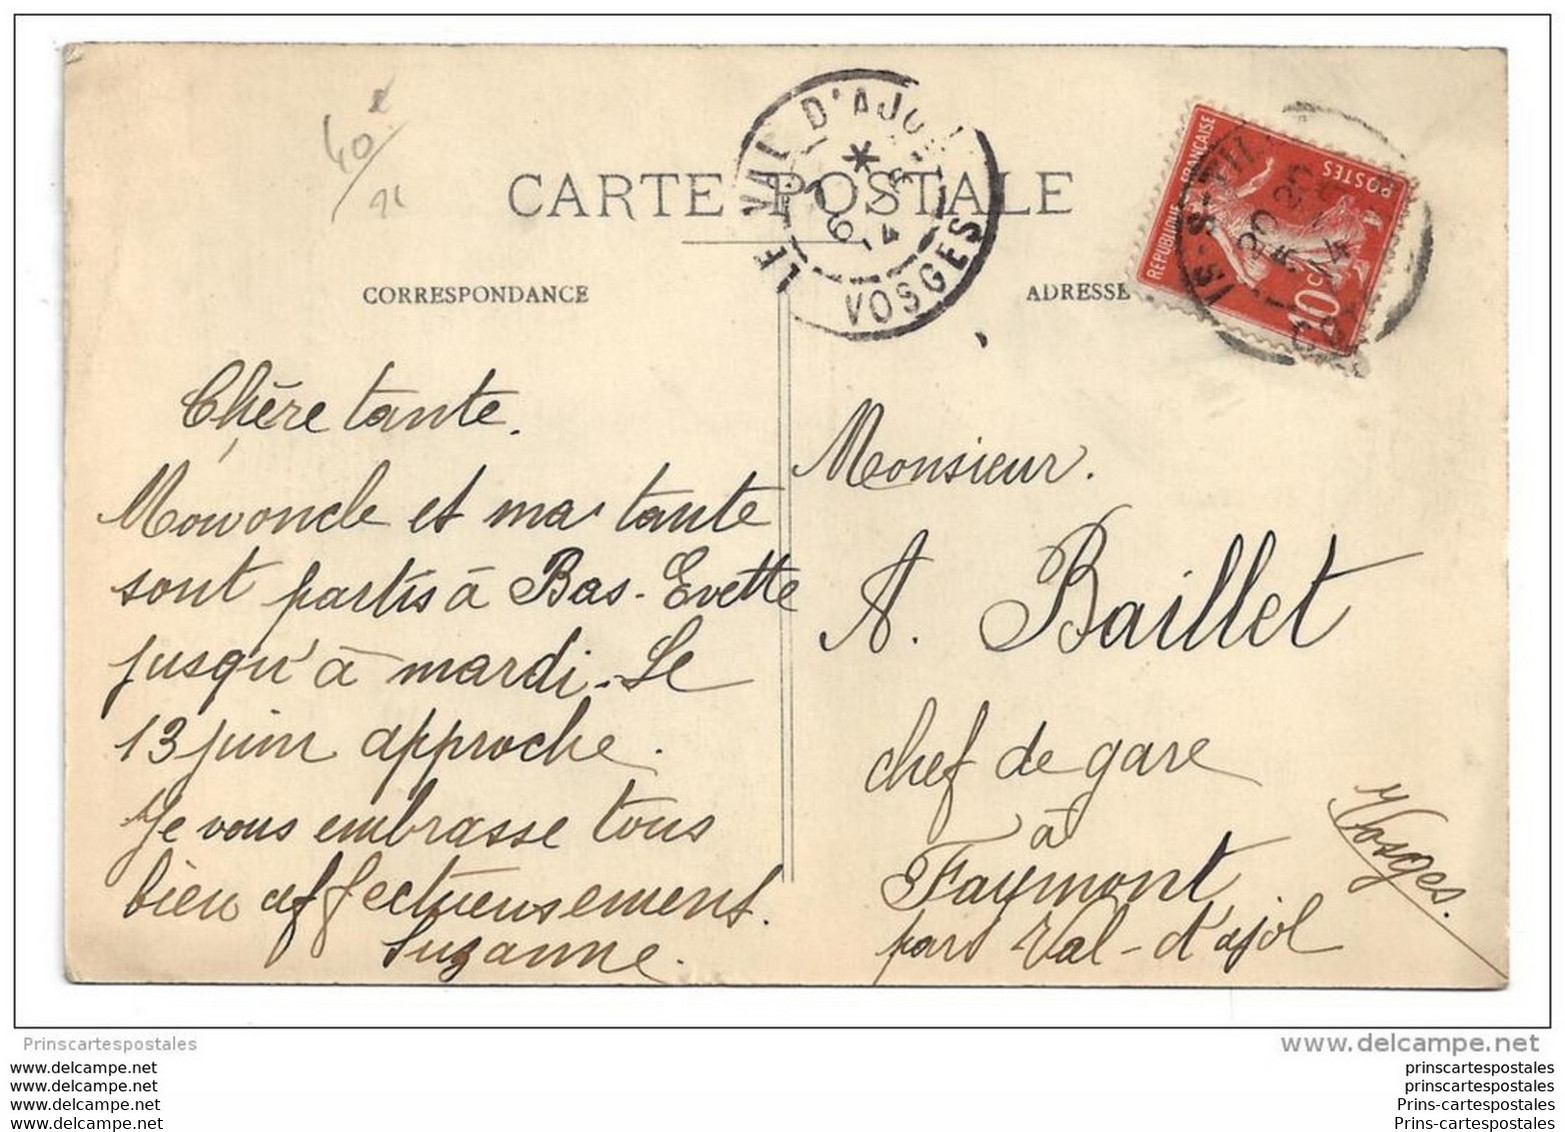 40
CARTE POSTALE
LE VAL D'AJOL
VOSGES
REPUBLIQUE FRANÇAISE
POSTES
10c
IS-S-TIL
CORRESPONDANCE
ADRESSE
Chère tante.
Mon oncle et ma tante
sont partis à Bas-Evette
jusqu'à mardi. Le
13 juin approche.
Je vous embrasse tous
bien affectueusement.
Suzanne.
Monsieur.
A. Baillet
chef de gare
à
Faymont
par Val-d'ajol
Vosges.
Prinscartespostales
www.delcampe.net
www.delcampe.net
www.delcampe.net
www.delcampe.net
www.delcampe.net
prinscartespostales
prinscartespostales
Prins-cartespostales
Prins-cartespostales